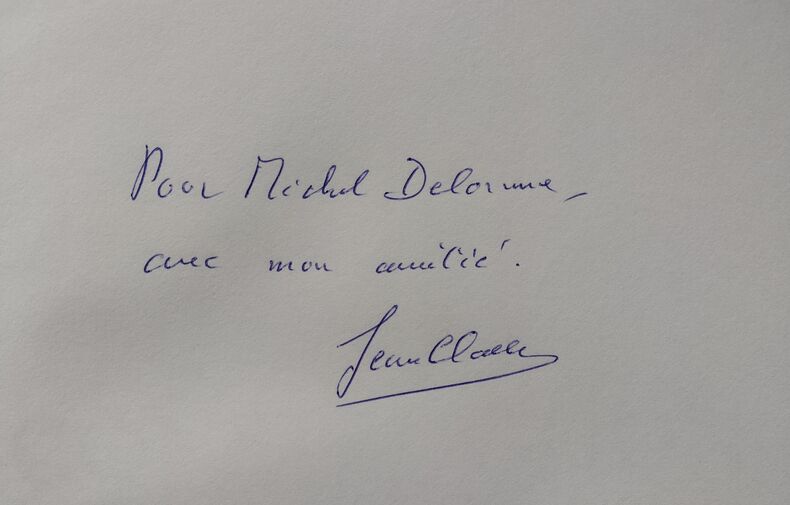 Pour Michel Delorme,
avec mon amitié.
Jean Claude